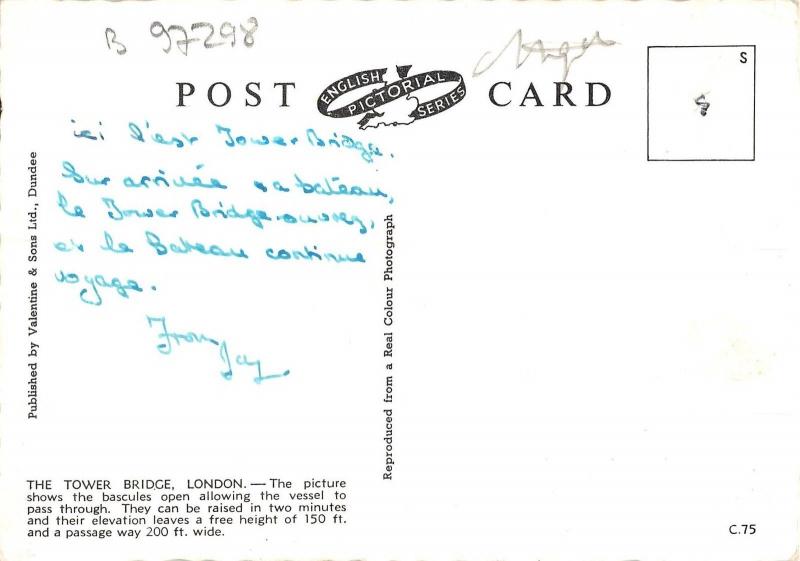 B 97298
POST CARD
ENGLISH
PICTORIAL
SERIES
S
ici l'est Tower Bridge.
Sur arrivée a bateau,
le Tower Bridge ouvrez,
et le bateau continue
voyage.
From
Jay.
Published by Valentine & Sons Ltd., Dundee
Reproduced from a Real Colour Photograph
THE TOWER BRIDGE, LONDON. — The picture
shows the bascules open allowing the vessel to
pass through. They can be raised in two minutes
and their elevation leaves a free height of 150 ft.
and a passage way 200 ft. wide.
C.75